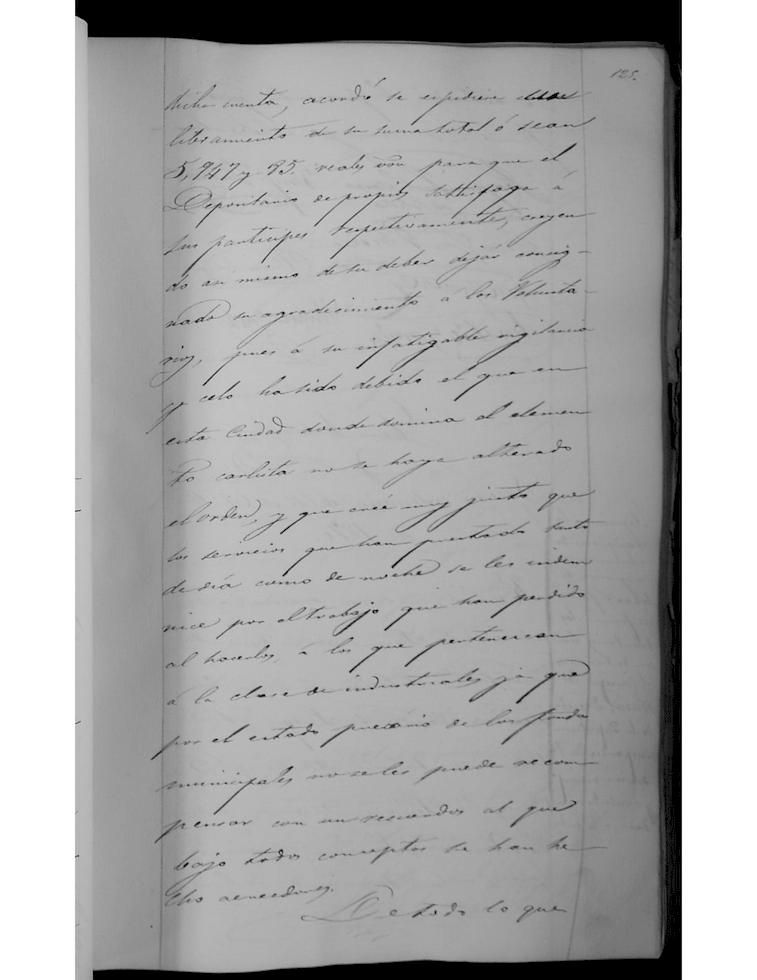 125.
dicha cuenta, acordó se expidiera
libramiento de su suma total ó sean
5,947 y 95. reales von para que el
Depositario de propios satisfaga á
sus participes respectivamente, creyen
do asi mismo de su deber dejar consig-
nado su agradecimiento á los Volunta-
rios, pues á su infatigable vigilancia
y celo ha sido debido el que en
esta Ciudad donde domina el elemen
to carlista no se haya alterado
el orden, y que creé muy justo que
los servicios que han prestado tanto
de dia como de noche se les indem
nice por el trabajo que han perdido
al hacerlos, á los que pertenezcan
á la clase de industriales ya que
por el estado precario de los fondos
municipales no se les puede recom-
pensar con un recuerdo al que
bajo todos conceptos se han he-
cho acreedores.
De todo lo que